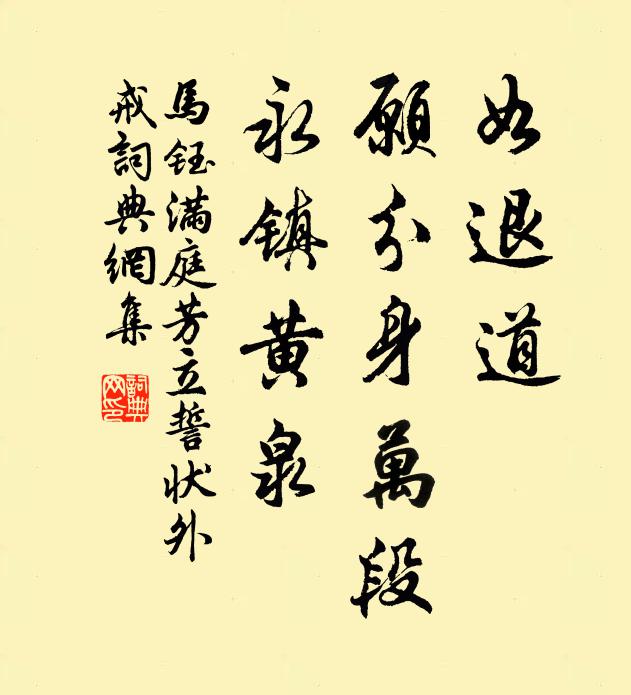 如退道
願分身萬段
永镇黄泉
馬鈺满庭芳立誓状外
戒詞典網集
詞典网印